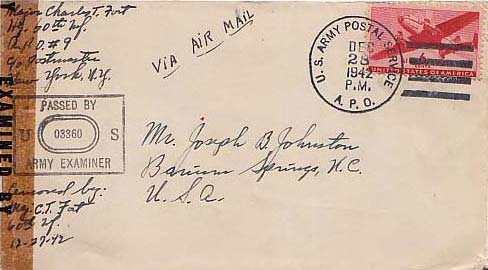 Major Charles T. Fort
Hq. 60th Inf.
A.P.O. #9
% Postmaster
New York, N.Y.
VIA AIR MAIL
U. S. ARMY POSTAL SERVICE
DEC
28
1942
P.M.
A. P. O.
6¢
UNITED STATES OF AMERICA
EXAMINED BY
PASSED BY
U 03360 S
ARMY EXAMINER
Mr. Joseph B. Johnston
Barium Springs, N.C.
U.S.A.
Censored by:
C.T. Fort
60th Inf.
12-27-42